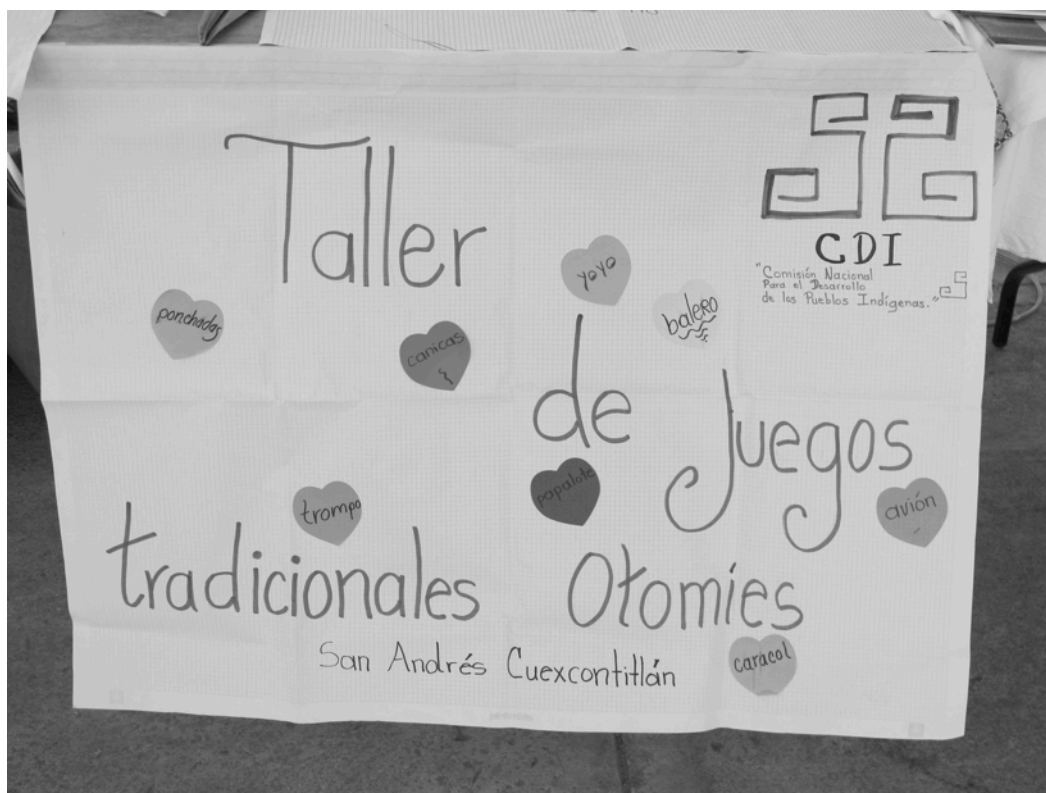 Taller
CDI
"Comisión Nacional
Para el Desarrollo
de los Pueblos Indígenas."
yoyo
balero
ponchadas
canicas
de Juegos
papalote
avión
trompo
tradicionales Otomíes
San Andrés Cuexcontitlán
caracol